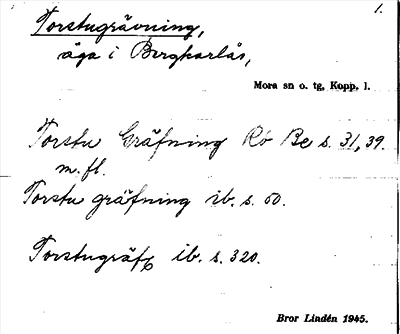 1.
Torstugrävning,
äga i Bergkarlås,
Mora sn o. tg, Kopp. l.
Torstu Gräfning Rö Be s. 31, 39.
m. fl.
Torstu gräfning ib. s. 50.
Torstugräf ib. s. 320.
Bror Lindén 1945.